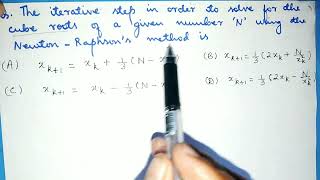 The iterative step in order to solve for the
cube roots of a given number 'N' using the
Newton - Raphson's method is
(A) xₖ₊₁ = xₖ + 1/3 (N - x (B) xₖ₊₁ = 1/3 (2xₖ + N/xₖ
(C) xₖ₊₁ = xₖ - 1/3 (N - x (D) xₖ₊₁ = 1/3 (2xₖ - N/xₖ